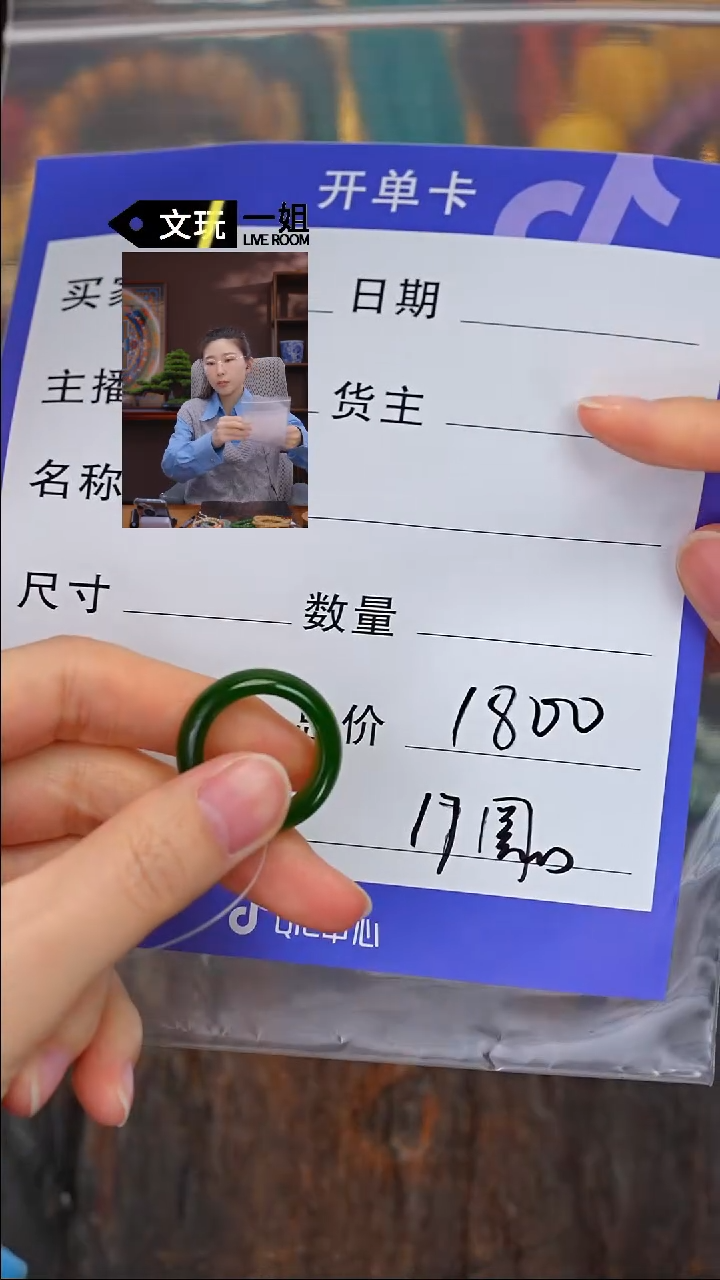 开单卡
文玩一姐
LIVE ROOM
买家 日期
主播 货主
名称
尺寸 数量
价 1800
心